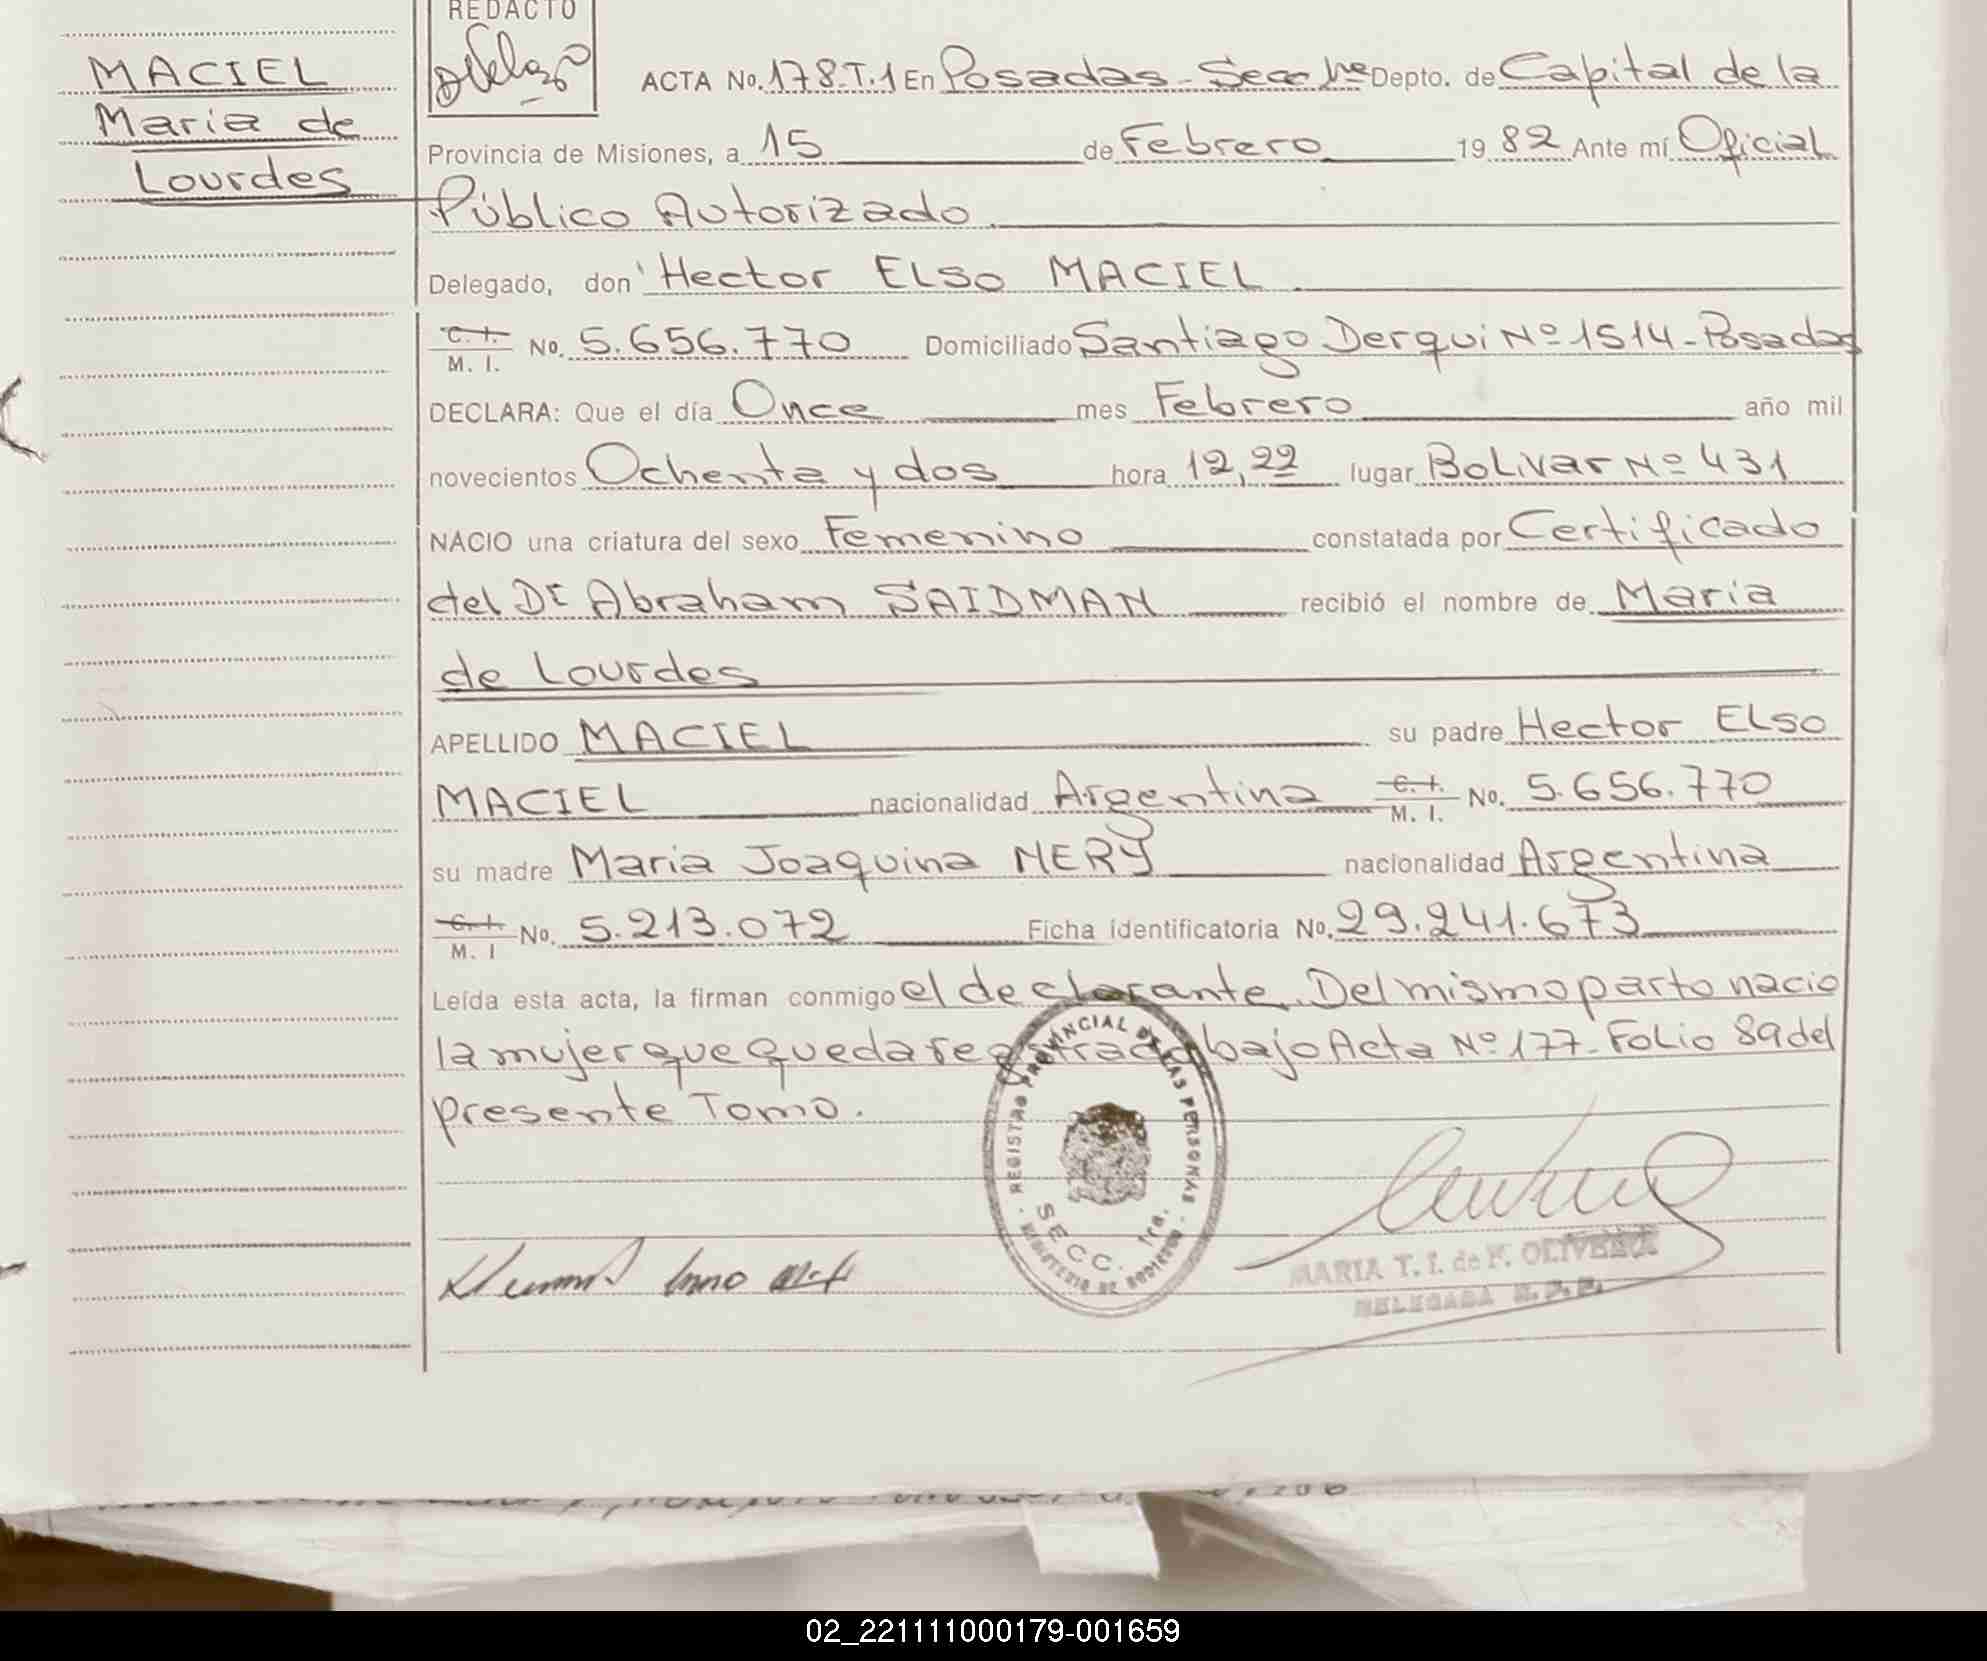 REDACTO
MACIEL
Maria de
Lourdes
ACTA No. 178-T.1 En Posadas - Secc 1ra Depto. de Capital de la
Provincia de Misiones, a 15 de Febrero 1982 Ante mí Oficial
Público Autorizado
Delegado, don Hector ELSO MACIEL
C. I.
M. I. No. 5.656.770 Domiciliado Santiago Derqui Nº 1514 - Posadas
DECLARA: Que el día Once mes Febrero año mil
novecientos Ochenta y dos hora 12,22 lugar BoLivar Nº 431
NACIO una criatura del sexo Femenino constatada por Certificado
del Dr Abraham SAIDMAN recibió el nombre de Maria
de Lourdes
APELLIDO MACIEL su padre Hector ELso
MACIEL nacionalidad Argentina C. I. M. I. No. 5.656.770
su madre Maria Joaquina NERY nacionalidad Argentina
C. I. M. I No. 5.213.072 Ficha identificatoria No. 29.241.673
Leída esta acta, la firman conmigo el declarante. Del mismo parto nacio
la mujer que queda registrada bajo Acta Nº 177 - FoLio 89 del
presente Tomo.
REGISTRO PROVINCIAL DE LAS PERSONAS
SECC. 1ra.
MINISTERIO DE GOBIERNO
MARIA T. I. de F. OLIVEIRA
DELEGADA R. P. P.
02_221111000179-001659